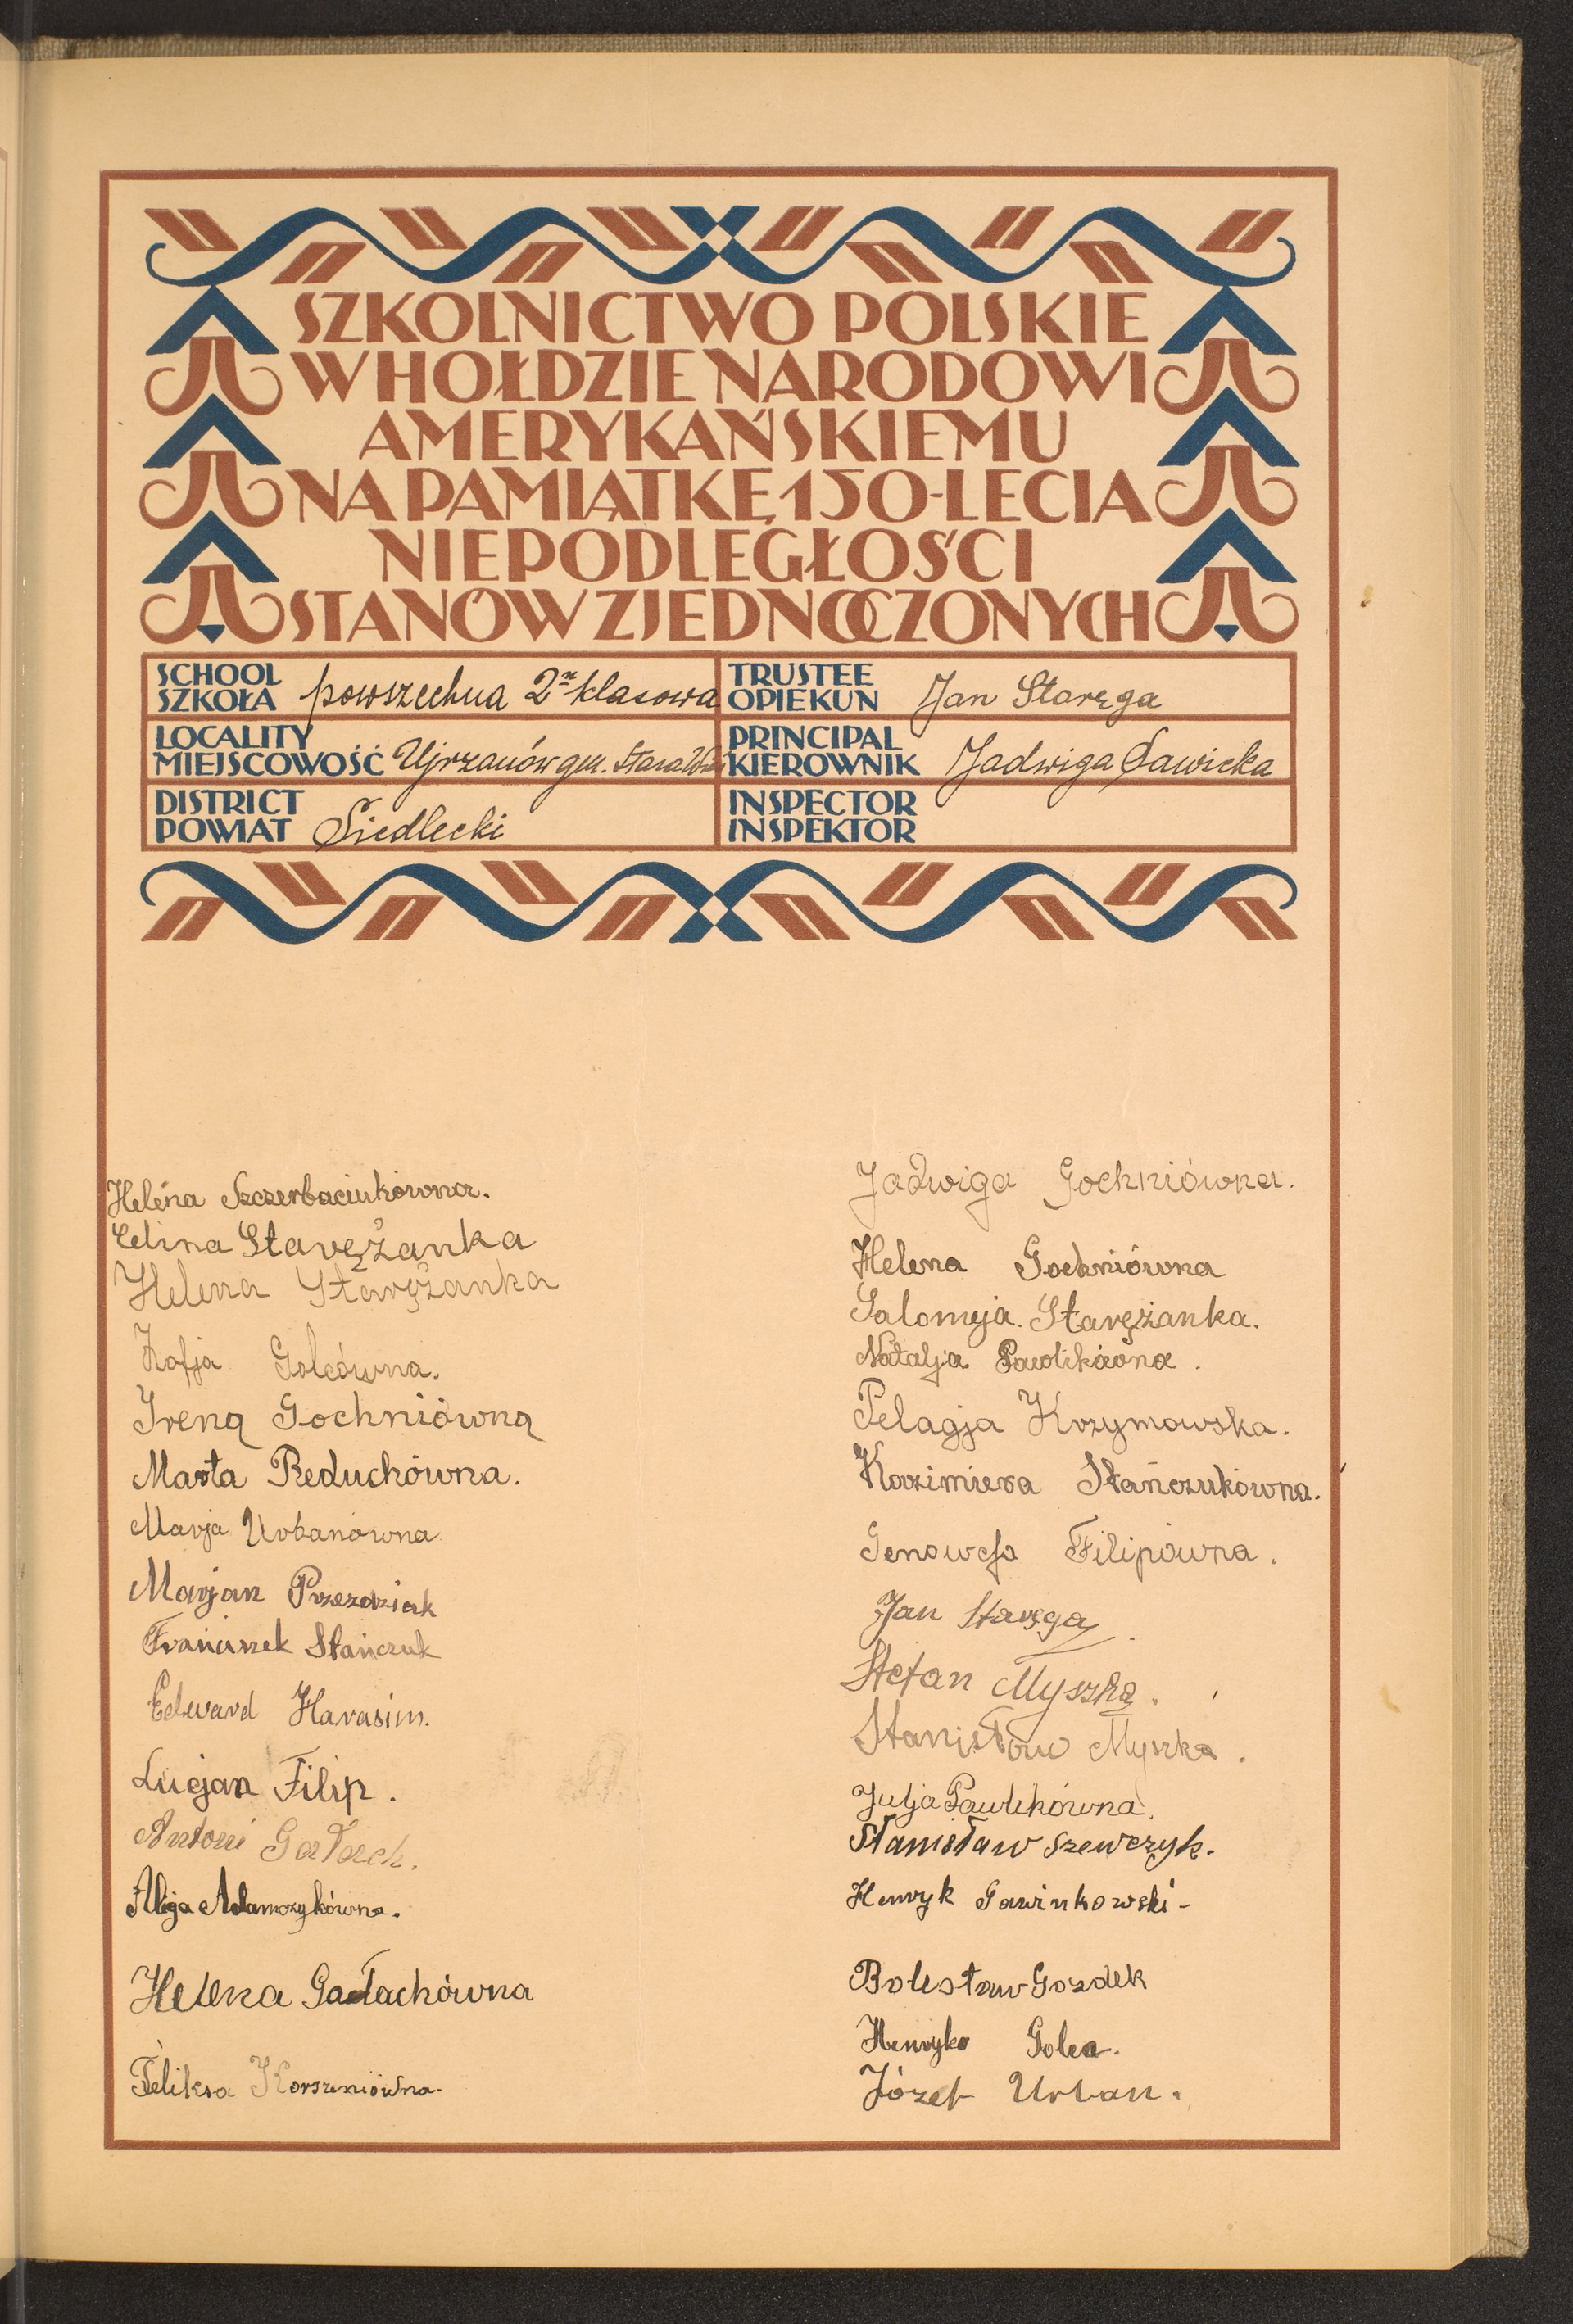 SZKOLNICTWO POLSKIE
W HOŁDZIE NARODOWI
AMERYKAŃSKIEMU
NA PAMIĄTKĘ 150-LECIA
NIEPODLEGŁOŚCI
STANÓW ZJEDNOCZONYCH
SCHOOL
SZKOŁA powszechna 2kl klasowa
TRUSTEE
OPIEKUN Jan Staręga
LOCALITY
MIEJSCOWOŚĆ Ujrzanów gm. Stara Wieś
PRINCIPAL
KIEROWNIK Jadwiga Sawicka
DISTRICT
POWIAT Siedlecki
INSPECTOR
INSPEKTOR
Helena Szczerbaciukówna.
Celina Staręžanka
Helena Staręžanka
Zofja Golcówna.
Irena Gochniówna
Marta Reduchówna.
Marja Urbanówna
Marjan Przezdziak
Franciszek Stańczuk
Edward Harasim.
Lucjan Filip.
Antoni Gałach.
Alicja Adamczykówna.
Helena Gałachówna
Feliksa Korszeniówna.
Jadwiga Gochniówna.
Helena Gochniówna
Salomeja Starężanka.
Natalja Pawlikówna.
Pelagja Krzymowska.
Kazimiera Stańczukówna.
Genowefa Filipówna.
Jan Staręga
Stefan Myszka.
Stanisław Myszka.
Julja Pawlikówna.
Stanisław Szewczyk.
Henryk Gawinkowski -
Bolesław Gozdek
Henryka Golca.
Józef Urban.